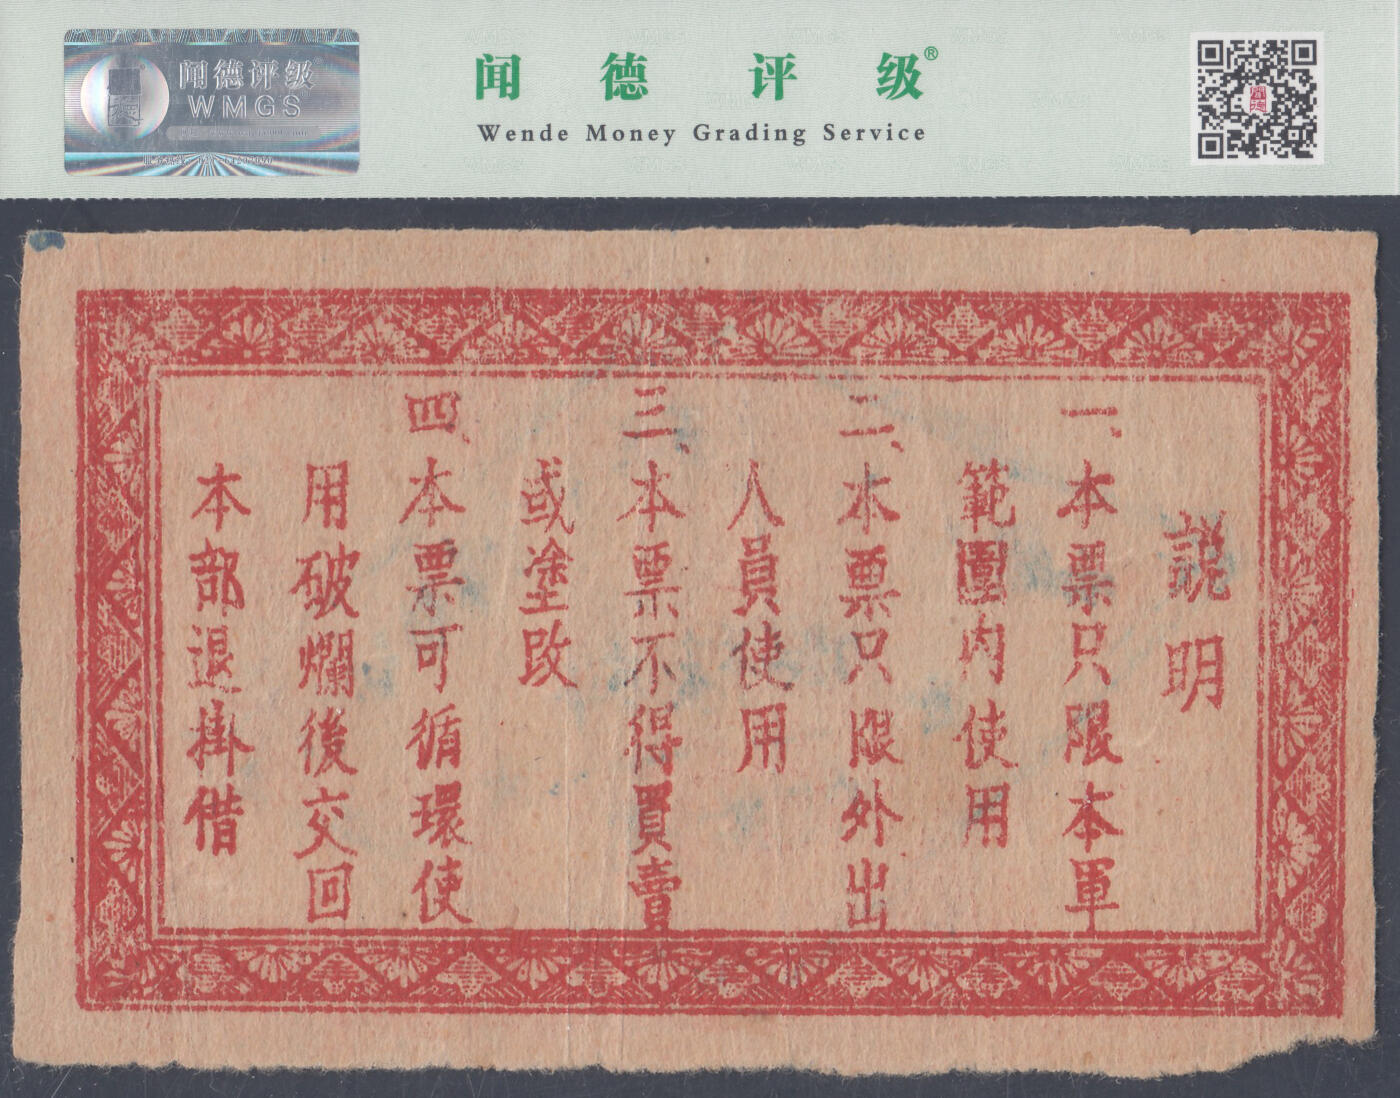 闻德评级®
WMGS
闻德评级®
Wende Money Grading Service
説明
一、本票只限本軍
範圍内使用
二、本票只限外出
人員使用
三、本票不得買賣
或塗改
四、本票可循環使
用破爛後交回
本部退掛借